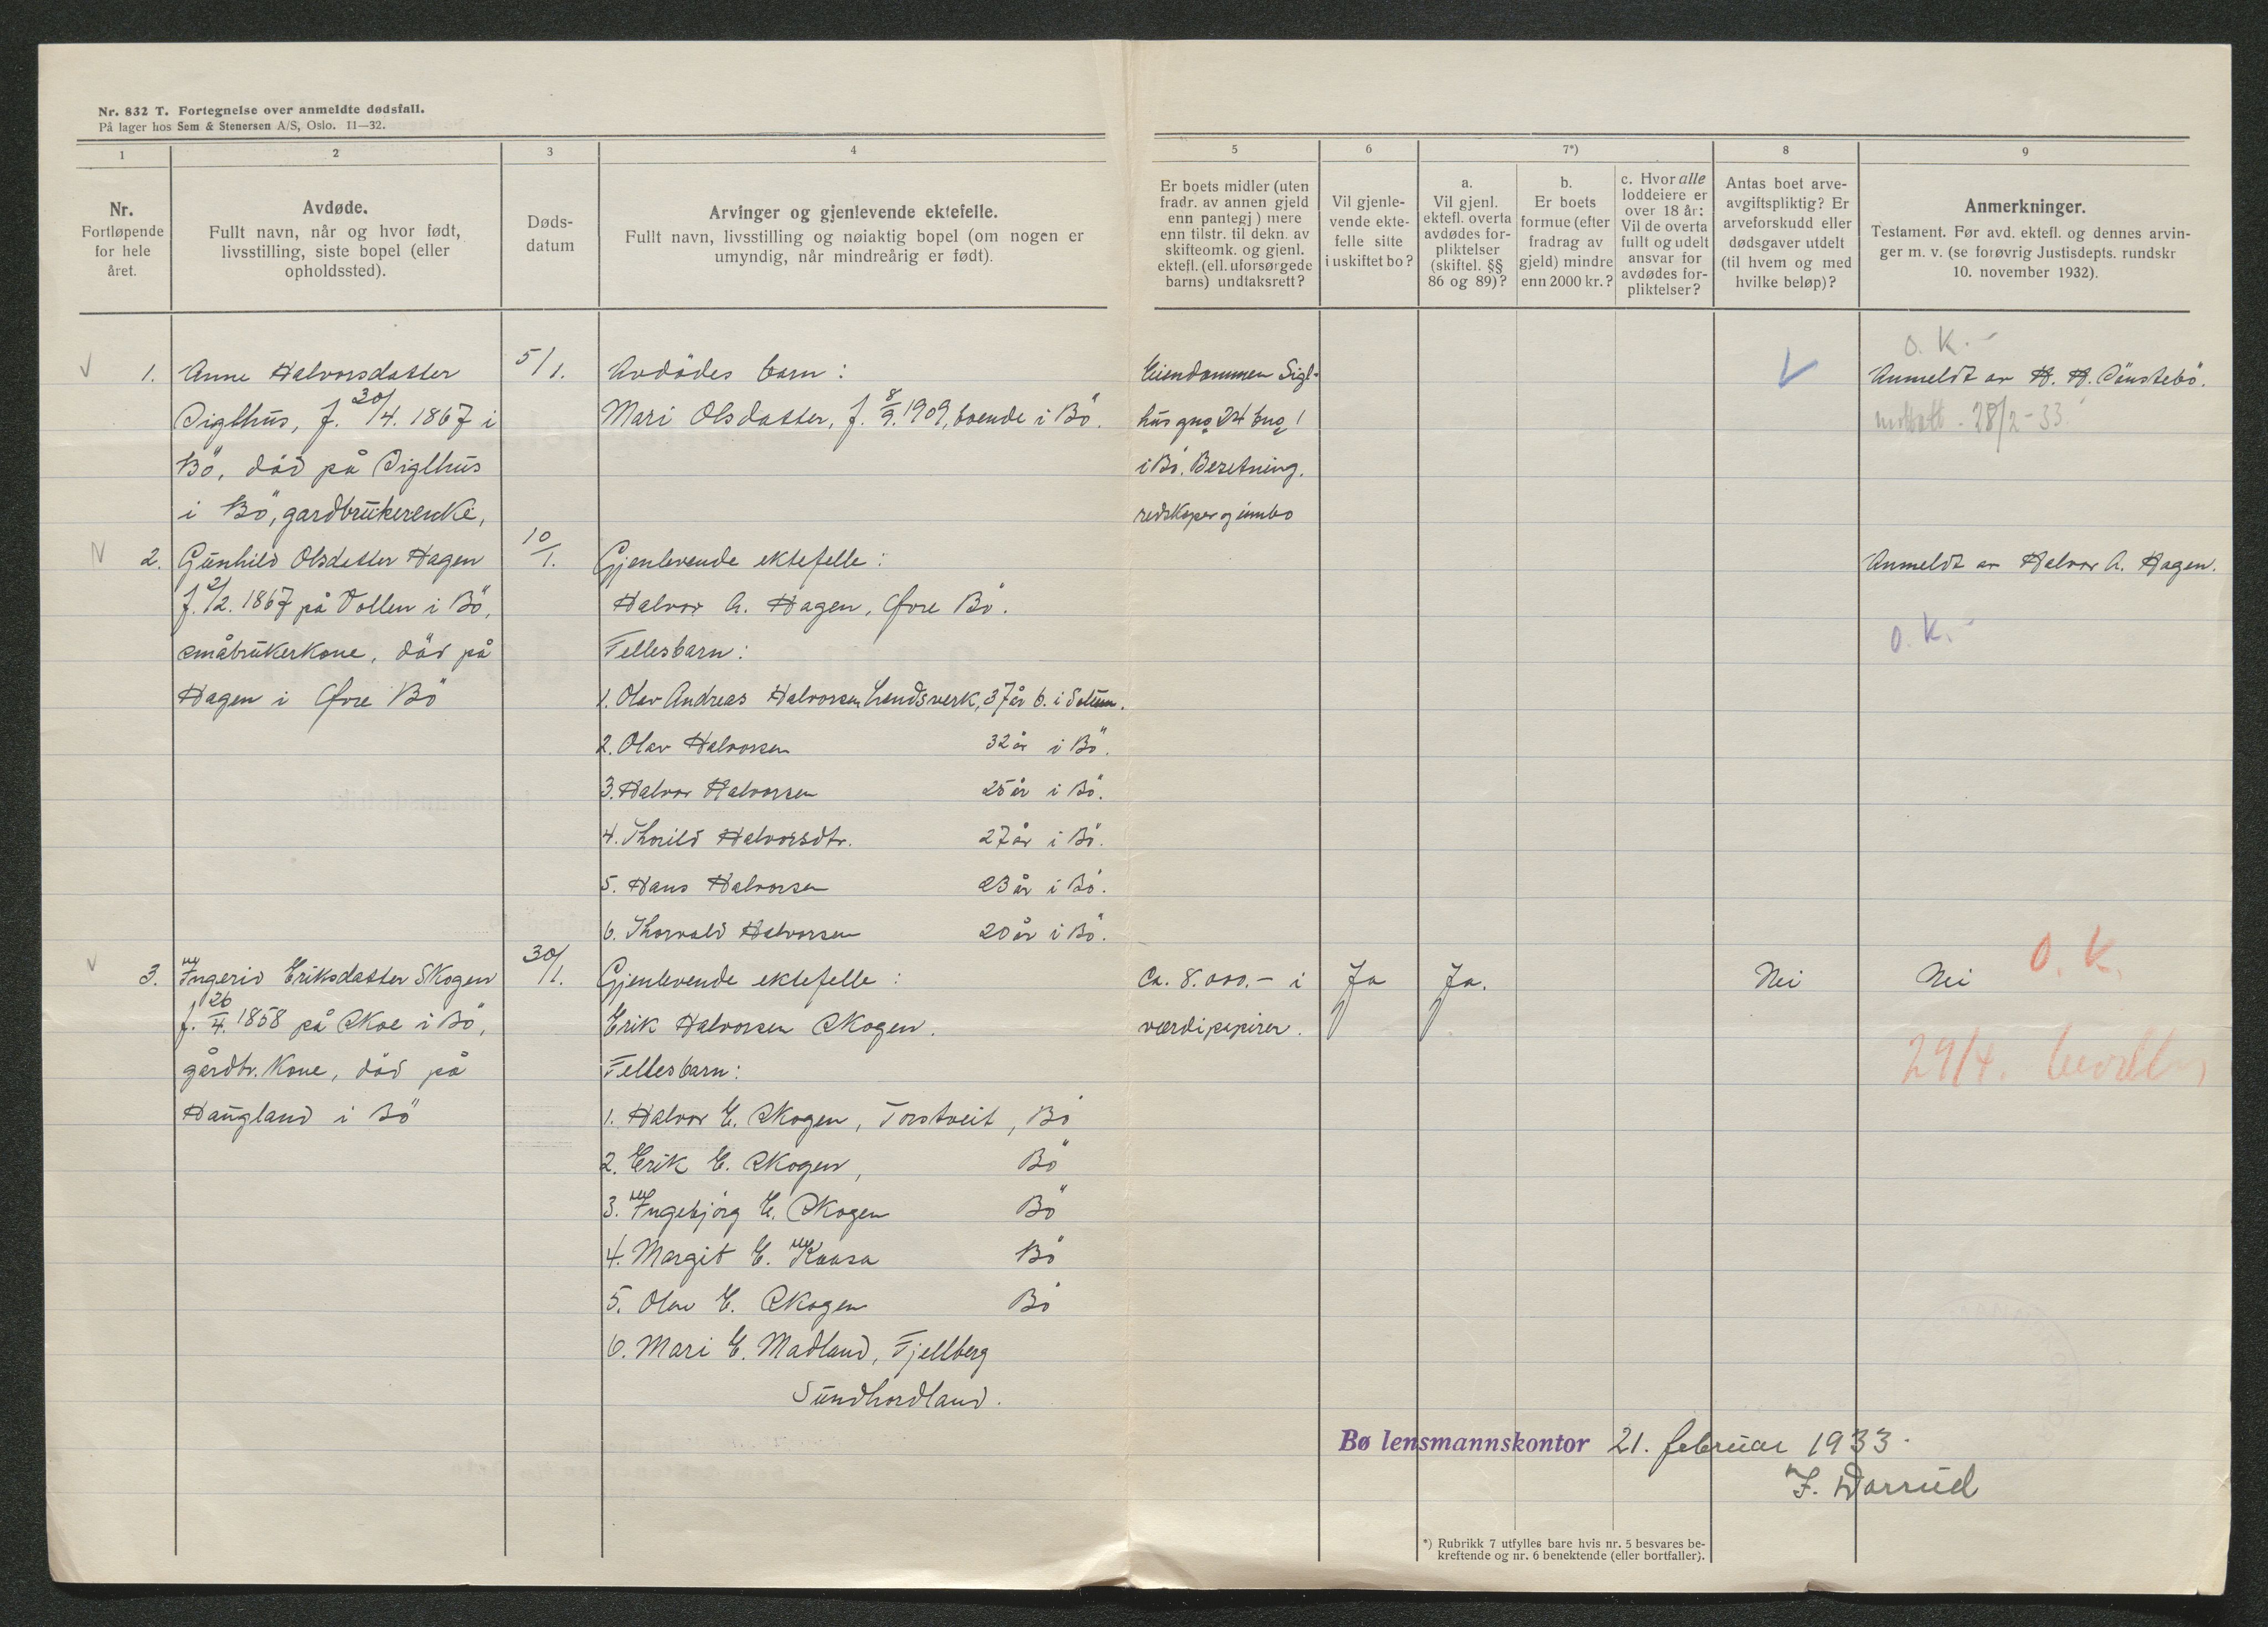 Nr. 832 T. Fortegnelse over anmeldte dødsfall.
På lager hos Sem & Stenersen A/S, Oslo. 11—32.
1
2
3
4
5
6
7*)
8
9
Nr.
Fortløpende
for hele
året.
Avdøde.
Fullt navn, når og hvor født,
livsstilling, siste bopel (eller
opholdssted).
Døds-
datum
Arvinger og gjenlevende ektefelle.
Fullt navn, livsstilling og nøiaktig bopel (om nogen er
umyndig, når mindreårig er født).
Er boets midler (uten
fradr. av annen gjeld
enn pantegj) mere
enn tilstr. til dekn. av
skifteomk. og gjenl.
ektefl. (ell. uforsørgede
barns) undtaksrett?
Vil gjenle-
vende ekte-
felle sitte
i uskiftet bo?
a.
Vil gjenl.
ektefl. overta
avdødes for-
pliktelser
(skiftel. §§
86 og 89)?
b.
Er boets
formue (efter
fradrag av
gjeld) mindre
enn 2000 kr.?
c. Hvor alle
loddeiere er
over 18 år:
Vil de overta
fullt og udelt
ansvar for
avdødes for-
pliktelser?
Antas boet arve-
avgiftspliktig? Er
arveforskudd eller
dødsgaver utdelt
(til hvem og med
hvilke beløp)?
Anmerkninger.
Testament. Før avd. ektefl. og dennes arvin-
ger m. v. (se forøvrig Justisdepts. rundskr
10. november 1932).
1. Anne Halvorsdatter 5/1. Avdödes barn: Eiendommen Sigl- O.K.-
Siglhus, f. 30/4. 1867 i Mari Olsdatter, f. 8/9. 1909, boende i Bö. hus gno 24 bno 1 Anmeldt av H. H.
Bö, död på Siglhus i Bö. Besetning, mottatt - 28/2-33
i Bö, gardbrukerenke, redskaper og innbo
2. Gunhild Olsdatter Hagen 10/1. Gjenlevende ektefelle: Anmeldt av Halvor A. Hagen.
f. 2/2. 1867 på Vollen i Bö, Halvor A. Hagen, Øvre Bö.
småbrukerkone, död på Fellesbarn: O.K.-
Hagen i Øvre Bö 1. Olav Andreas Halvorsen Lendsverk, 37 år b. i Solum.
2. Olav Halvorsen 32 år i Bö.
3. Halvor Halvorsen 25 år i Bö.
4. Thorild Halvorsdtr. 27 år i Bö.
5. Hans Halvorsen 23 år i Bö.
6. Thorvald Halvorsen 20 år i Bö.
3. Ingerid Eriksdatter Skogen 30/1. Gjenlevende ektefelle: Ca. 8.000.- i Ja Ja. Nei Nei O.K.
f. 26/4. 1858 på Skoe i Bö, Erik Halvorsen Skogen. værdipapirer.
gårdbr. kone, död på Fellesbarn: 29/4.
Haugland i Bö 1. Halvor E. Skogen, Torstveit, Bö
2. Erik E. Skogen, Bö
3. Ingebjörg E. Skogen Bö
4. Margit E. Kaasa Bö
5. Olav E. Skogen Bö
6. Mari E. Madland, Fjellberg
Sundhordland.
Bø lensmannskontor 21. februar 1933.
*) Rubrikk 7 utfylles bare hvis nr. 5 besvares be-
kreftende og nr. 6 benektende (eller bortfaller).